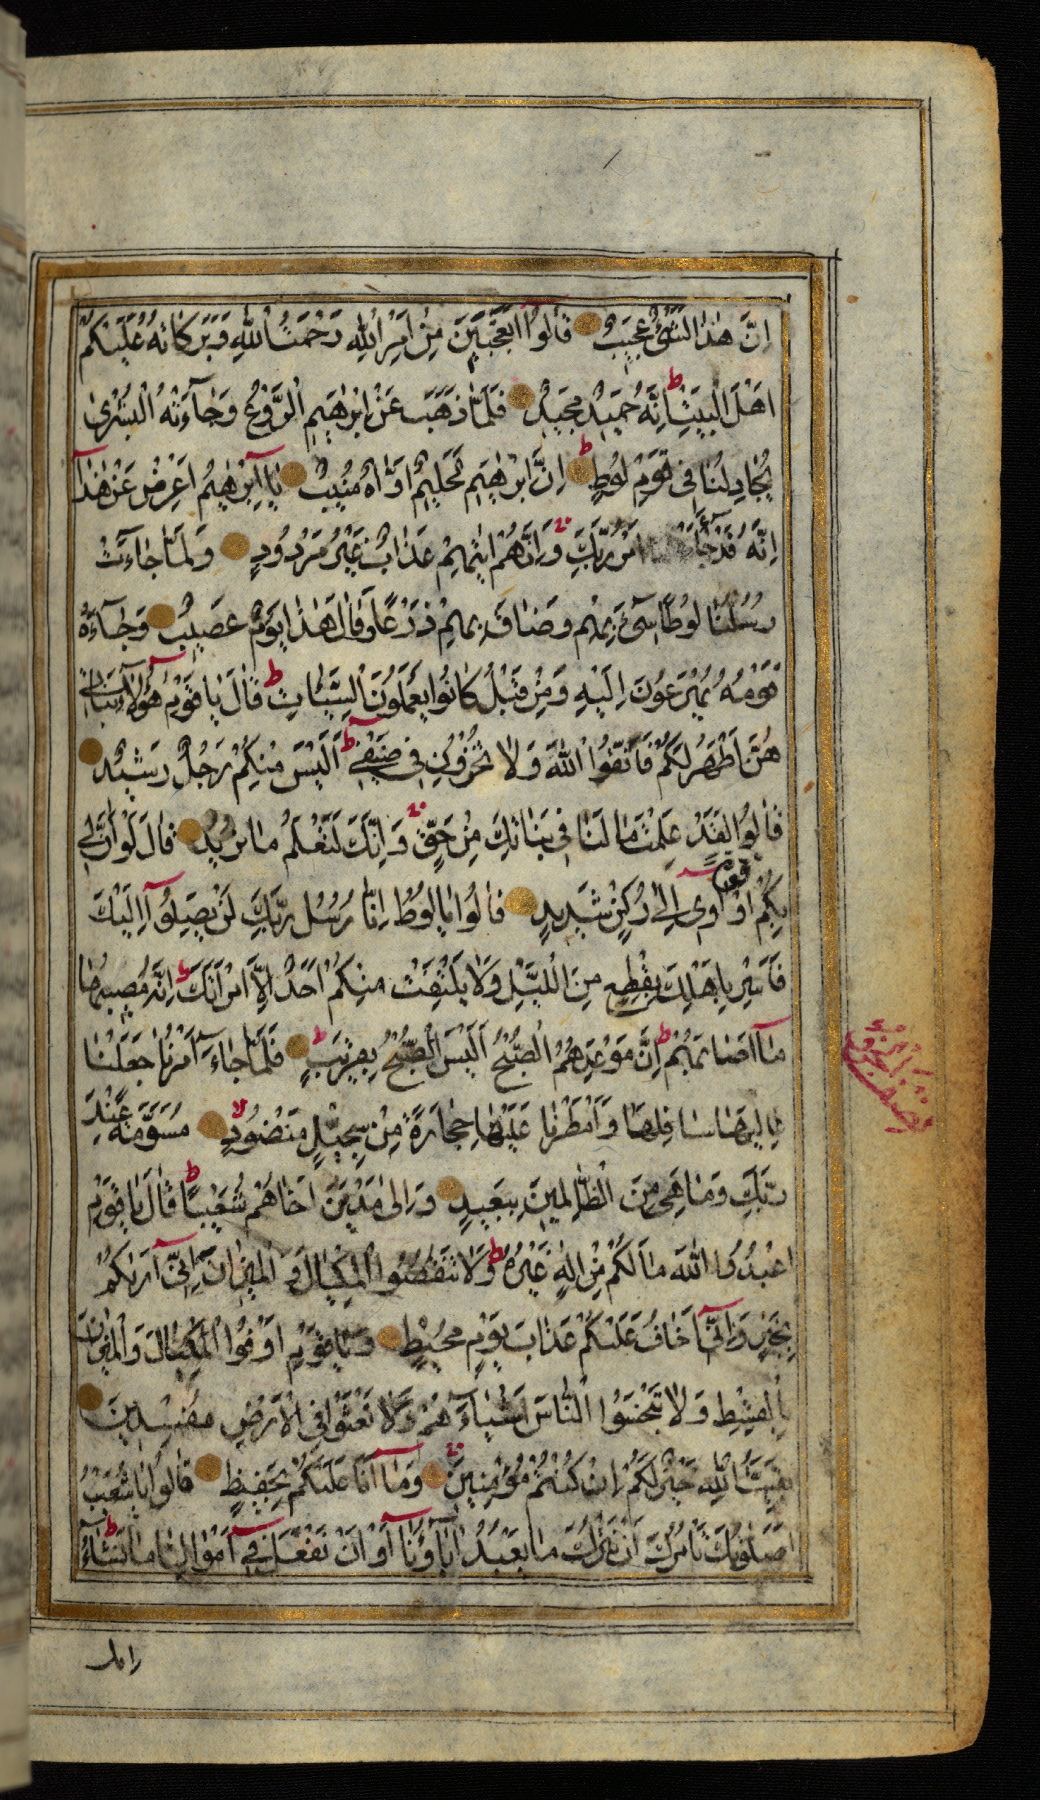 اِنَّ هٰذَا لَشَيْءٌ عَجِيبٌ قَالُوا اَتَعْجَبِينَ مِنْ اَمْرِ اللّٰهِ رَحْمَتُ اللّٰهِ وَبَرَكَاتُهُ عَلَيْكُمْ
اَهْلَ الْبَيْتِ ط اِنَّهُ حَمِيدٌ مَجِيدٌ فَلَمَّا ذَهَبَ عَنْ اِبْرٰهِيمَ الرَّوْعُ وَجَآءَتْهُ الْبُشْرٰى
يُجَادِلُنَا فِى قَوْمِ لُوطٍ ط اِنَّ اِبْرٰهِيمَ لَحَلِيمٌ اَوَّاهٌ مُنِيبٌ يَا اِبْرٰهِيمُ اَعْرِضْ عَنْ هٰذَا
اِنَّهُ قَدْ جَآءَ اَمْرُ رَبِّكَ وَاِنَّهُمْ اٰتِيهِمْ عَذَابٌ غَيْرُ مَرْدُودٍ وَلَمَّا جَاءَتْ
رُسُلُنَا لُوطًا سِىٓءَ بِهِمْ وَضَاقَ بِهِمْ ذَرْعًا وَقَالَ هٰذَا يَوْمٌ عَصِيبٌ وَجَآءَهُ
قَوْمُهُ يُهْرَعُونَ اِلَيْهِ وَمِنْ قَبْلُ كَانُوا يَعْمَلُونَ السَّيِّئَاتِ ط قَالَ يَا قَوْمِ هٰٓؤُلَاءِ بَنَاتِى
هُنَّ اَطْهَرُ لَكُمْ فَاتَّقُوا اللّٰهَ وَلَا تُخْزُونِ فِى ضَيْفِى ط اَلَيْسَ مِنْكُمْ رَجُلٌ رَشِيدٌ
قَالُوا لَقَدْ عَلِمْتَ مَا لَنَا فِى بَنَاتِكَ مِنْ حَقٍّ وَاِنَّكَ لَتَعْلَمُ مَا نُرِيدُ قَالَ لَوْ اَنَّ لِى
بِكُمْ قُوَّةً اَوْ اٰوِى اِلٰى رُكْنٍ شَدِيدٍ قَالُوا يَا لُوطُ اِنَّا رُسُلُ رَبِّكَ لَنْ يَصِلُوا اِلَيْكَ
فَاَسْرِ بِاَهْلِكَ بِقِطْعٍ مِنَ الَّيْلِ وَلَا يَلْتَفِتْ مِنْكُمْ اَحَدٌ اِلَّا امْرَاَتَكَ ط اِنَّهُ مُصِيبُهَا
مَا اَصَابَهُمْ ط اِنَّ مَوْعِدَهُمُ الصُّبْحُ اَلَيْسَ الصُّبْحُ بِقَرِيبٍ ط فَلَمَّا جَاءَ اَمْرُنَا جَعَلْنَا
عَالِيَهَا سَافِلَهَا وَاَمْطَرْنَا عَلَيْهَا حِجَارَةً مِنْ سِجِّيلٍ مَنْضُودٍ لا مُسَوَّمَةً عِنْدَ
رَبِّكَ وَمَا هِىَ مِنَ الظَّالِمِينَ بِبَعِيدٍ وَاِلٰى مَدْيَنَ اَخَاهُمْ شُعَيْبًا ط قَالَ يَا قَوْمِ
اعْبُدُوا اللّٰهَ مَا لَكُمْ مِنْ اِلٰهٍ غَيْرُهُ ط وَلَا تَنْقُصُوا الْمِكْيَالَ وَالْمِيزَانَ اِنِّى اَرٰيكُمْ
بِخَيْرٍ وَاِنِّى اَخَافُ عَلَيْكُمْ عَذَابَ يَوْمٍ مُحِيطٍ وَيَا قَوْمِ اَوْفُوا الْمِكْيَالَ وَالْمِيزَانَ
بِالْقِسْطِ وَلَا تَبْخَسُوا النَّاسَ اَشْيَآءَهُمْ وَلَا تَعْثَوْا فِى الْاَرْضِ مُفْسِدِينَ
بَقِيَّتُ اللّٰهِ خَيْرٌ لَكُمْ اِنْ كُنْتُمْ مُؤْمِنِينَ وَمَا اَنَا عَلَيْكُمْ بِحَفِيظٍ قَالُوا يَا شُعَيْبُ
اَصَلٰوتُكَ تَاْمُرُكَ اَنْ نَتْرُكَ مَا يَعْبُدُ اٰبَاؤُنَا اَوْ اَنْ نَفْعَلَ فِى اَمْوَالِنَا مَا نَشَاءُ ط